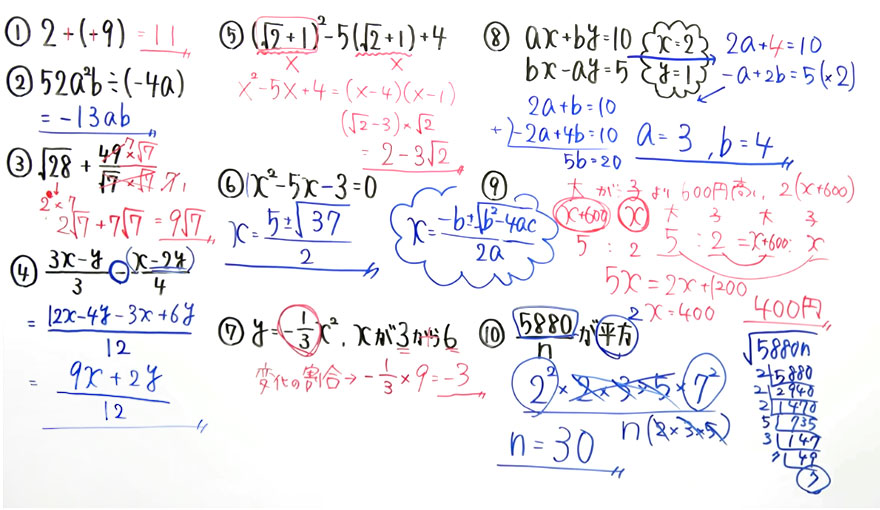 ① 2+(+9) = 11
② 52a²b÷(-4a)
= -13ab
③ √28 + 49×√7/√7×√7
2²×7
2√7+7√7 = 9√7
④ (3x-y)/3 - (x-2y)/4
= (12x-4y-3x+6y)/12
= (9x+2y)/12
⑤ (√2+1)²-5(√2+1)+4
x x
x²-5x+4=(x-4)(x-1)
(√2-3)×√2
= 2-3√2
⑥ x²-5x-3=0
x = (5±√37)/2
x = (-b±√(b²-4ac))/2a
⑦ y=-1/3x², xが3から6
変化の割合→-1/3×9=-3
⑧ ax+by=10 x=2 2a+4=10
bx-ay=5 y=1 -a+2b=5(×2)
2a+b=10
+) -2a+4b=10
5b=20
a=3, b=4
⑨ 大が小より600円高い 2(x+600)
x+600 x 大 小 大 小
5 : 2 5 : 2 = x+600 : x
5x=2x+1200
x=400 400円
⑩ 5880/nが平方
2²×2×3×5×7²
n(2×3×5)
n=30
√5880n
2 5880
2 2940
2 1470
5 735
3 147
7 49
7